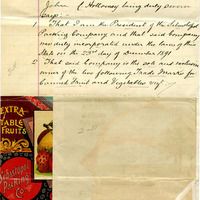 John ( Hollowey being duly sworn
says:-
1 That I am the President of the Sebastopol
Packing Company and that said Company
was duly incorporated under the laws of this
State on the 23rd day of December 1891
2 That said Company is the sole and exclusive
owner of the two following Trade Marks for
Canned Fruit and Vegetables viz
EXTRA
TABLE
FRUITS
Sebastopol
Packing
Co.